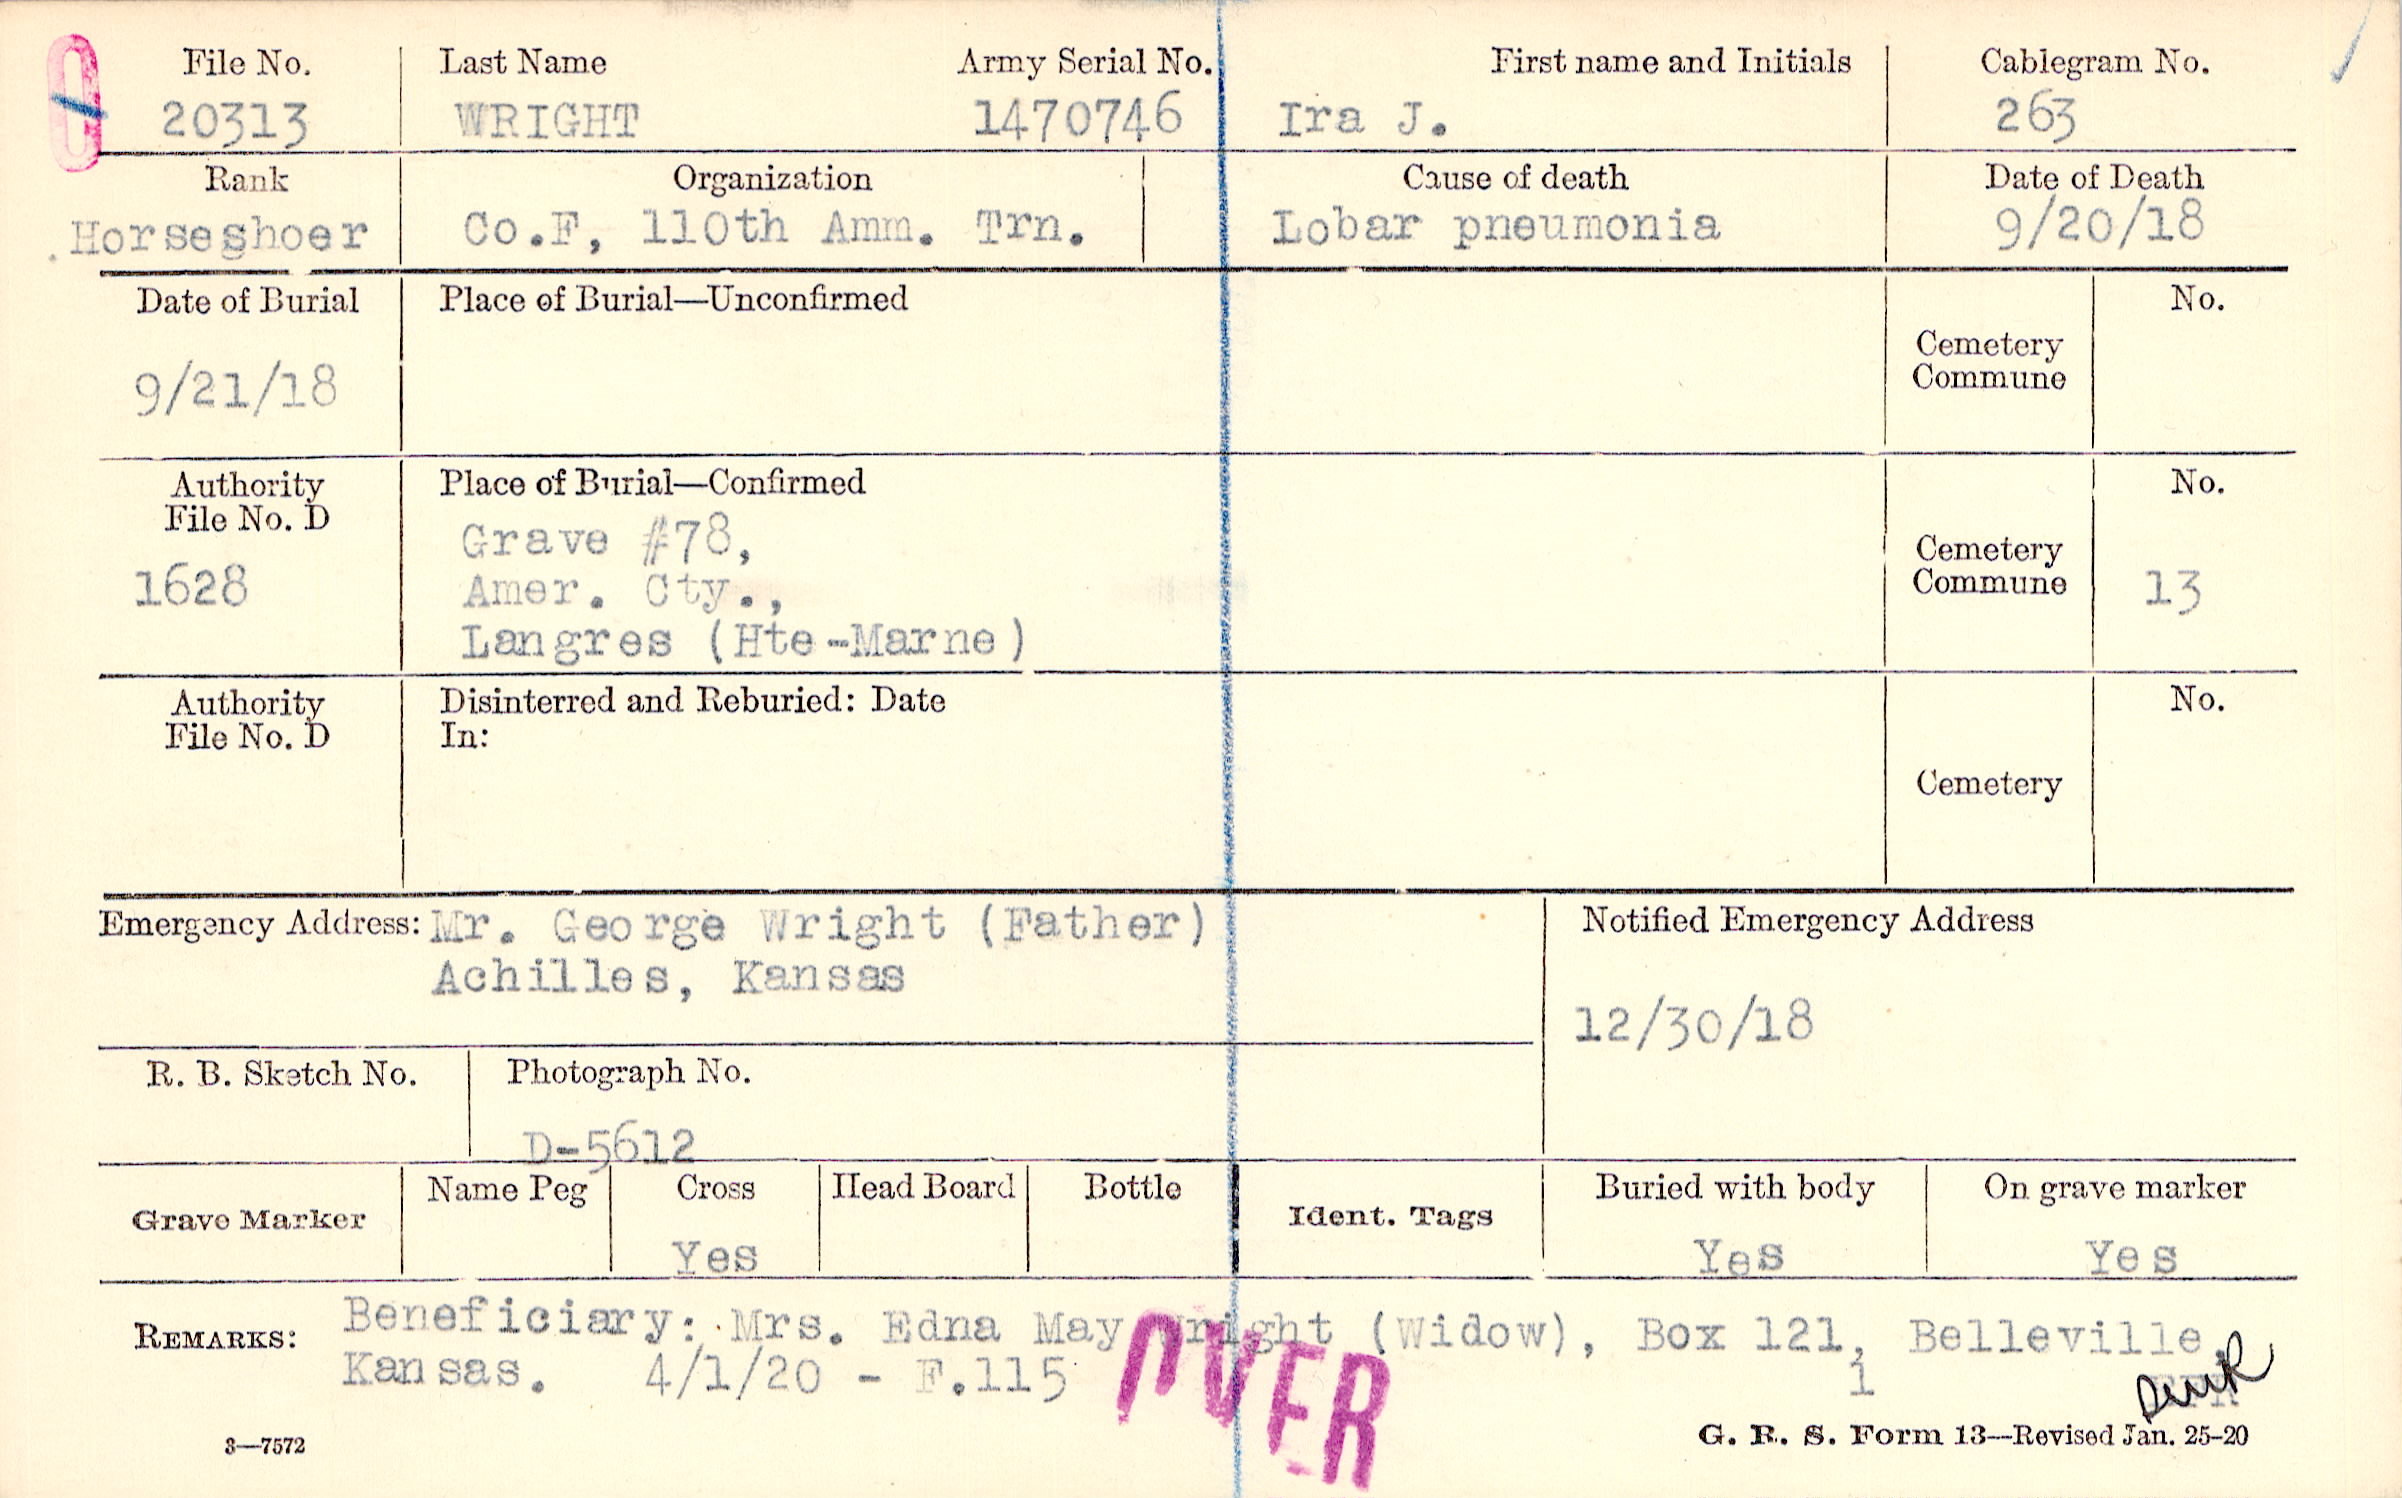 File No. Last Name Army Serial No. First name and Initials Cablegram No.
20313 WRIGHT 1470746 Ira J. 263
Rank Organization Cause of death Date of Death
Horseshoer Co.F, 110th Amm. Trn. Lobar pneumonia 9/20/18
Date of Burial Place of Burial—Unconfirmed No.
Cemetery
Commune
9/21/18
Authority Place of Burial—Confirmed No.
File No. D
Grave #78,
Cemetery
1628 Amer. Cty., Commune 13
Langres (Hte-Marne)
Authority Disinterred and Reburied: Date No.
File No. D In:
Cemetery
Emergency Address: Mr. George Wright (Father) Notified Emergency Address
Achilles, Kansas
12/30/18
R. B. Sketch No. Photograph No.
D-5612
Grave Marker Name Peg Cross Head Board Bottle Ident. Tags Buried with body On grave marker
Yes Yes Yes
REMARKS: Beneficiary: Mrs. Edna May Wright (Widow), Box 121, Belleville,
Kansas. 4/1/20 - F.115 1
OVER
3—7572 G. R. S. Form 13—Revised Jan. 25-20